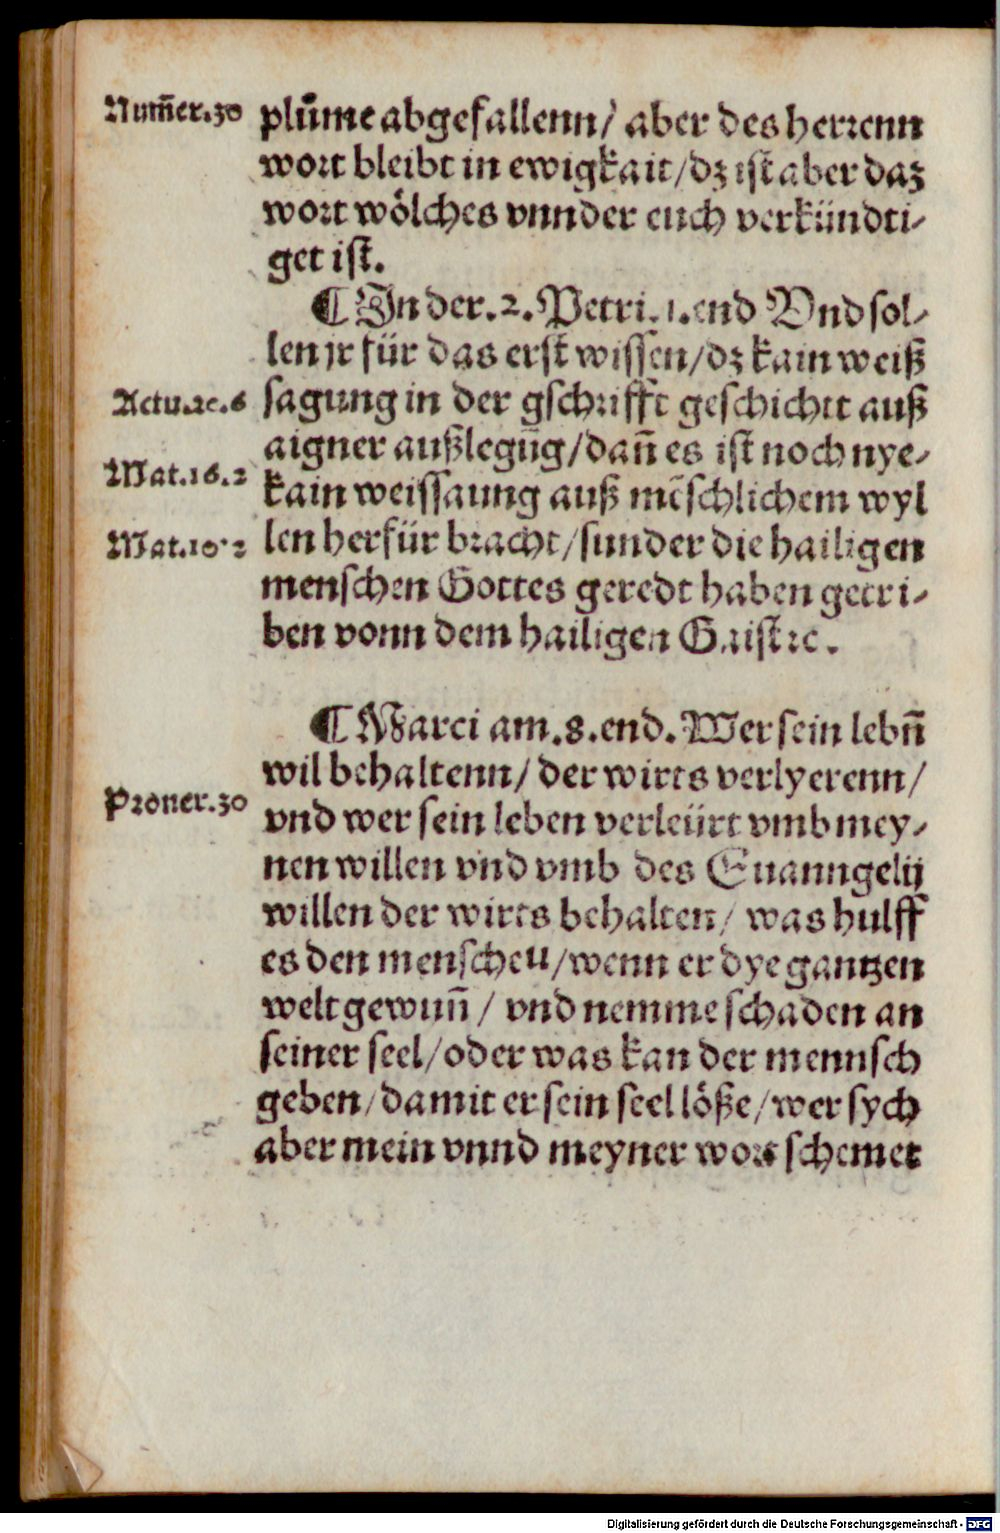 Num̄er.30
plůme abgefallenn/ aber des herrenn
wort bleibt in ewigkait/dz ist aber daz
wort wölches vnnder euch verkündti-
get ist.
¶ In der.2.Petri.1.end Vnd sol-
len jr für das erst wissen/dz kain weiß
Actu.2c.6
sagung in der gschrifft geschicht auß
aigner außlegūg/dañ es ist noch nye-
Mat.16.2
kain weissaung auß mēschlichem wyl
Mat.10.2
len herfür bracht/sunder die hailigen
menschen Gottes geredt haben getri-
ben vonn dem hailigen Gaist ꝛc.
¶ Marci am.8.end.Wer sein lebñ
wil behaltenn/ der wirts verlyerenn/
Proner.30
vnd wer sein leben verleürt vmb mey-
nen willen vnd vmb des Euanngelij
willen der wirts behalten/ was hulff
es den menscheu/wenn er dye gantzen
welt gewunñ / vnd nemme schaden an
seiner seel/oder was kan der mennsch
geben/damit er sein seel löße/wer sych
aber mein vnnd meyner wort schemet
Digitalisierung gefördert durch die Deutsche Forschungsgemeinschaft - DFG